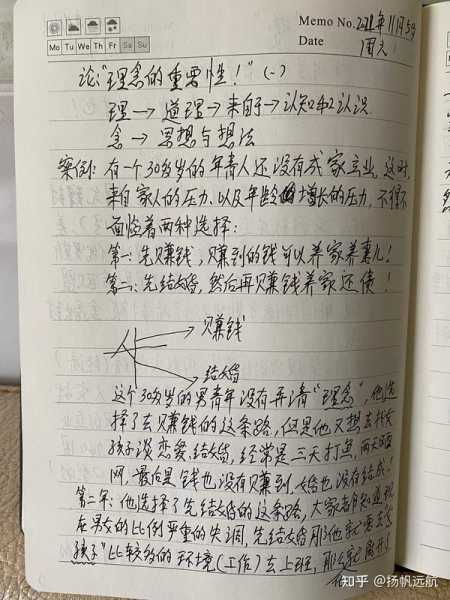 Memo No. 2021年11月5号
Mo Tu We Th Fr Sa Su
Date 周六!
论:"理念的重要性!"(一)
理→道理→来自于→认知和认识
念→思想与想法
案例:有一个30多岁的年青人还没有成家立业,这时,
来自家人的压力,以及年龄的增长的压力,不得不
面临着两种选择:
第一:先赚钱,赚到的钱可以养家养妻儿!
第二:先结婚,然后再赚钱养家还债!
赚钱
人
结婚
这个30多岁的男青年没有弄清"理念",他选
择了去赚钱的这条路,但是他又想去找女
孩子谈恋爱,结婚,经常是三天打鱼,两天晒
网,最后是钱也没有赚到,婚也没有结成!
第二年:他选择了先结婚的这条路,大家都知道现
在男女的比例严重的失调,先结婚那他就要去女
孩子比较多的环境(工作)去上班,那么就离开!
知乎 @扬帆远航